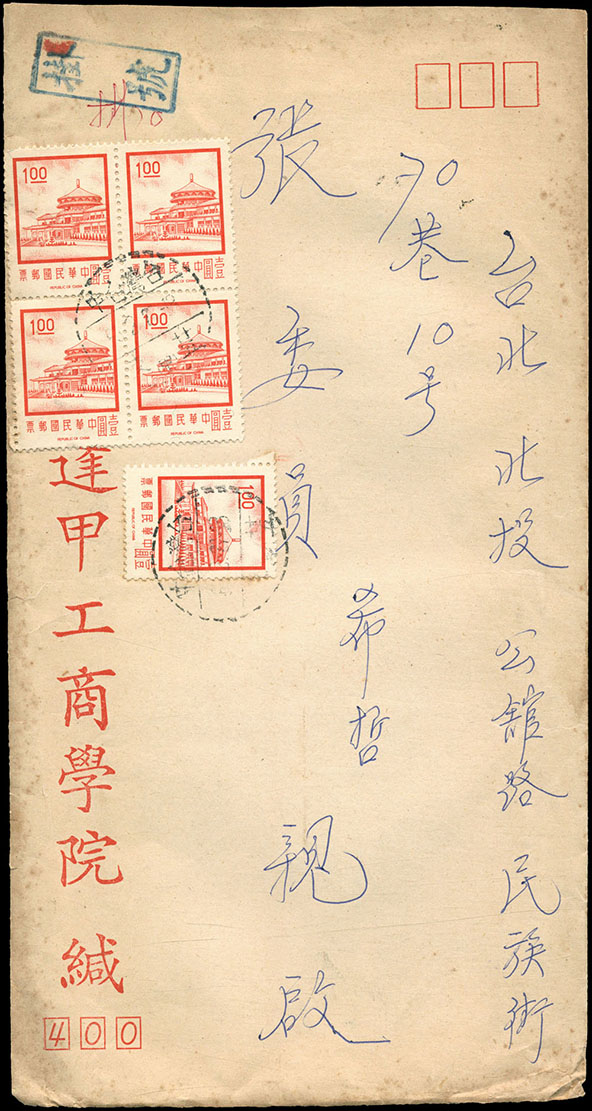 台北 北投 公舘路 民族街
70巷 10号
張委員 希哲 親啟
掛號
1.00
壹圓中華民國郵票
REPUBLIC OF CHINA
1.00
壹圓中華民國郵票
REPUBLIC OF CHINA
1.00
壹圓中華民國郵票
REPUBLIC OF CHINA
1.00
壹圓中華民國郵票
REPUBLIC OF CHINA
1.00
壹圓中華民國郵票
REPUBLIC OF CHINA
逢甲工商學院 緘
400